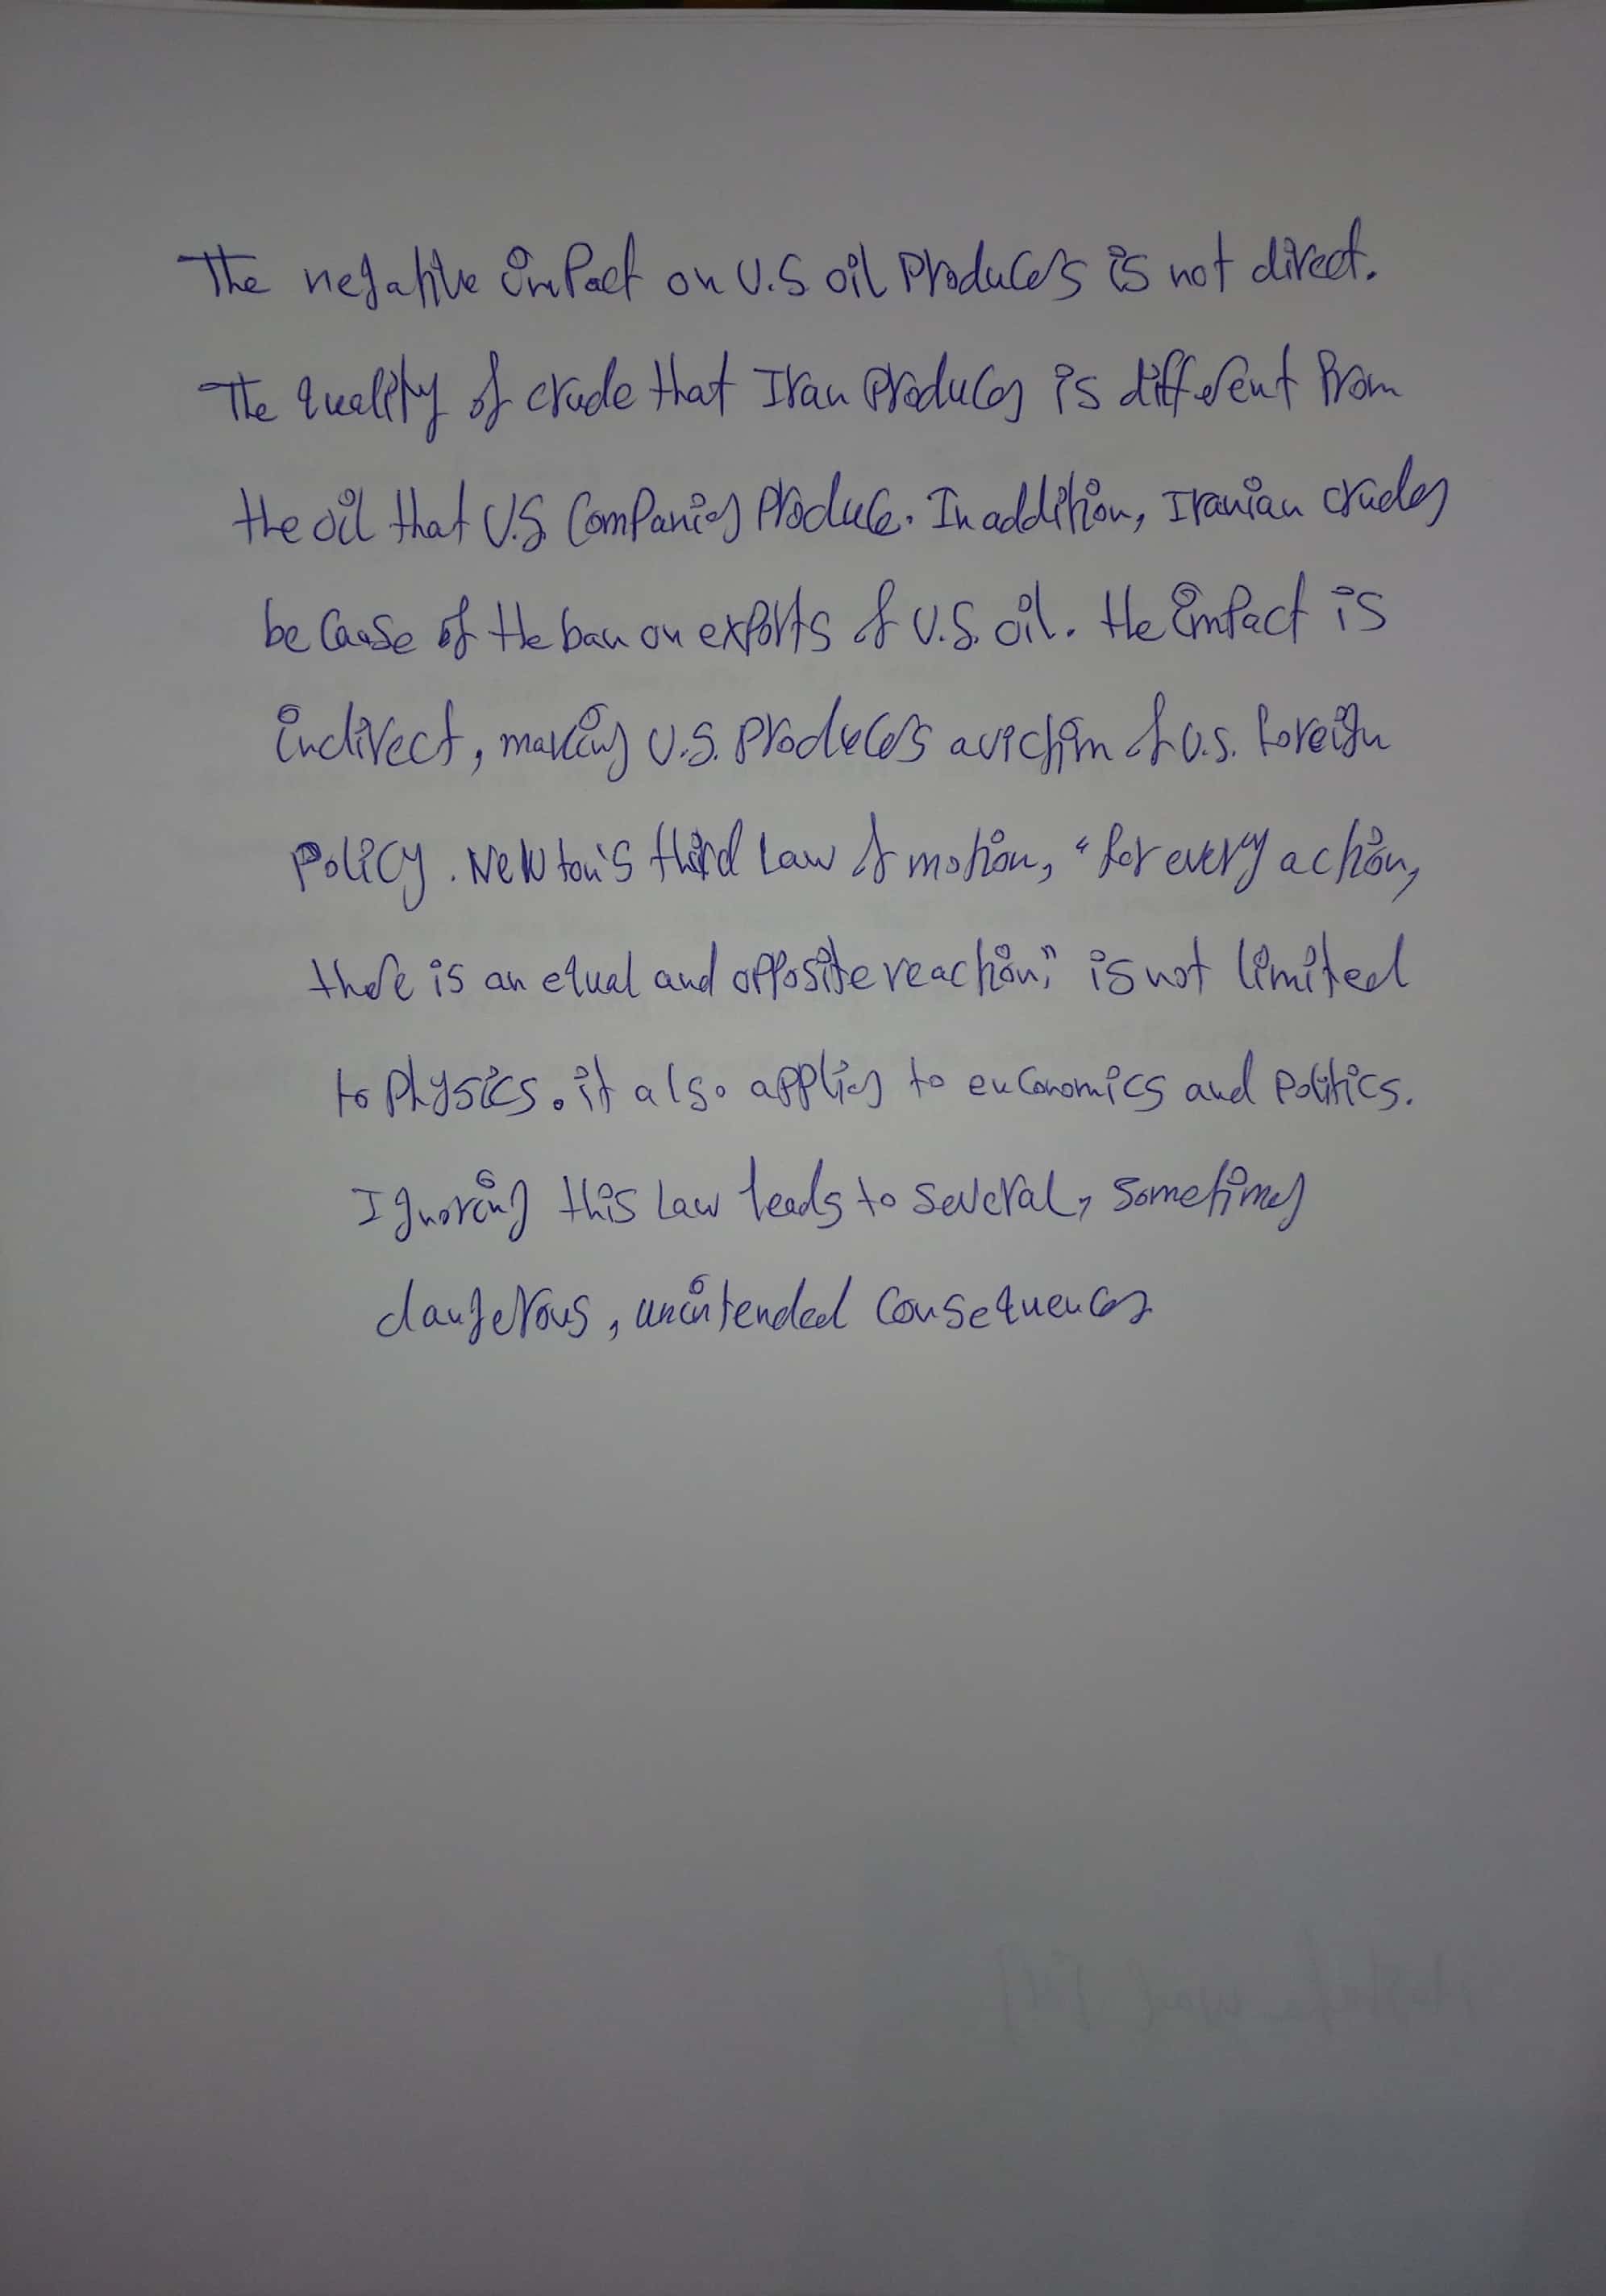 The negative impact on U.S oil Producers is not direct.
The quality of crude that Iran Produces is different from
the oil that U.S. Companies Produce. In addition, Iranian crudes
because of the ban on exports of U.S. oil. the impact is
indirect, making U.S. Producers a victim of U.S. foreign
Policy. Newton's third Law of motion, "for every action,
there is an equal and opposite reaction," is not limited
to Physics. it also applies to euconomics and Politics.
Ignoring this Law leads to several, sometimes
dangerous, unintended Consequences